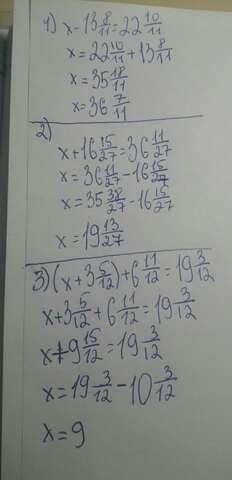 1) x-13 8/11=22 10/11
x=22 10/11+13 8/11
x=35 18/11
x=36 7/11
2)
x+16 15/27=36 11/27
x=36 11/27-16 15/27
x=35 38/27-16 15/27
x=19 13/27
3) (x+3 5/12)+6 11/12=19 3/12
x+3 5/12+6 11/12=19 3/12
x+9 15/12=19 3/12
x=19 3/12-10 3/12
x=9